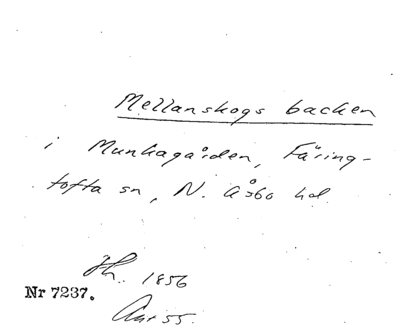 Mellanskogs backen
i Munkagården, Färing-
tofta sn, N. Åsbo hd
Hh. 1856
Nr 7237.
55.